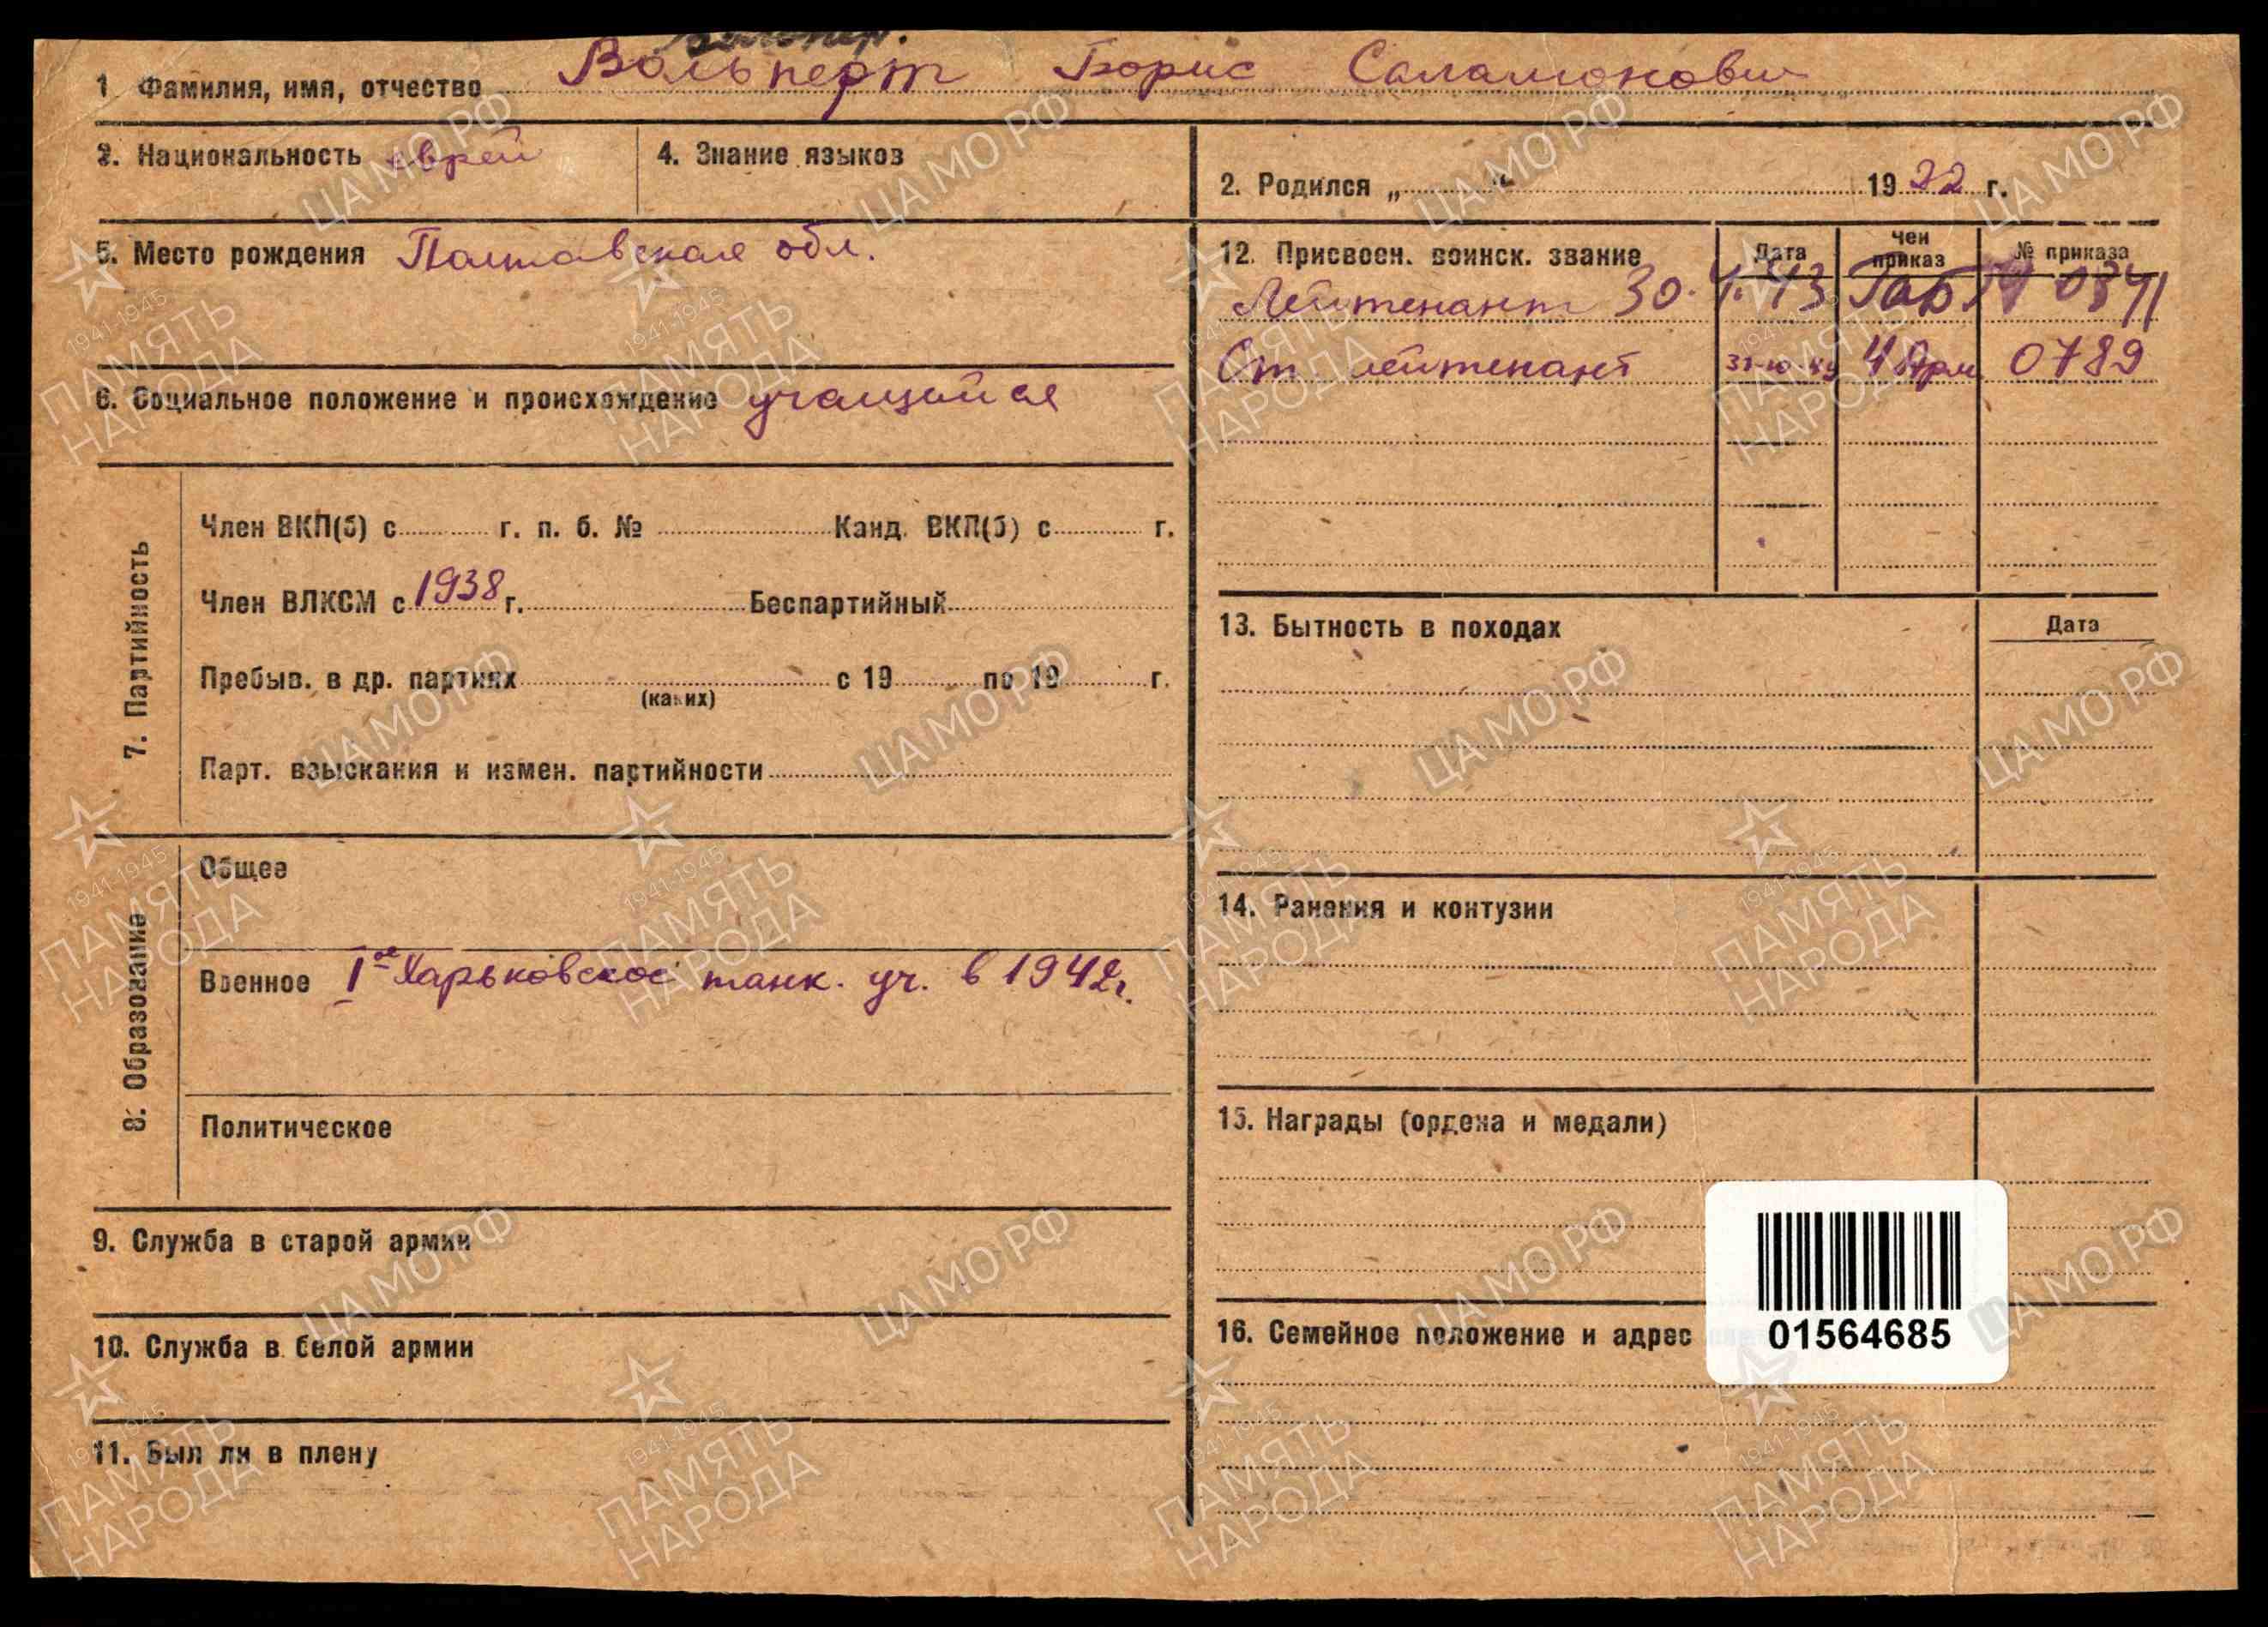 1. Фамилия, имя, отчество Вольперт Борис Саламонович
3. Национальность еврей
4. Знание языков
2. Родился „ “ 1922 г.
5. Место рождения Полтавская обл.
6. Социальное положение и происхождение учащийся
7. Партийность
Член ВКП(б) с г. п. б. № Канд. ВКП(б) с г.
Член ВЛКСМ с 1938 г. Беспартийный
Пребыв. в др. партиях с 19 по 19 г.
(каких)
Парт. взыскания и измен. партийности
8. Образование
Общее
Военное 1ое Харьковское танк. уч. в 1942г.
Политическое
9. Служба в старой армии
10. Служба в белой армии
11. Был ли в плену
12. Присвоен. воинск. звание Дата Чей приказ № приказа
Лейтенант 30.4.43 0341
Ст. лейтенант 4 0789
13. Бытность в походах Дата
14. Ранения и контузии
15. Награды (ордена и медали)
16. Семейное положение и адрес
01564685
ЦАМО РФ
1941-1945
ПАМЯТЬ
НАРОДА